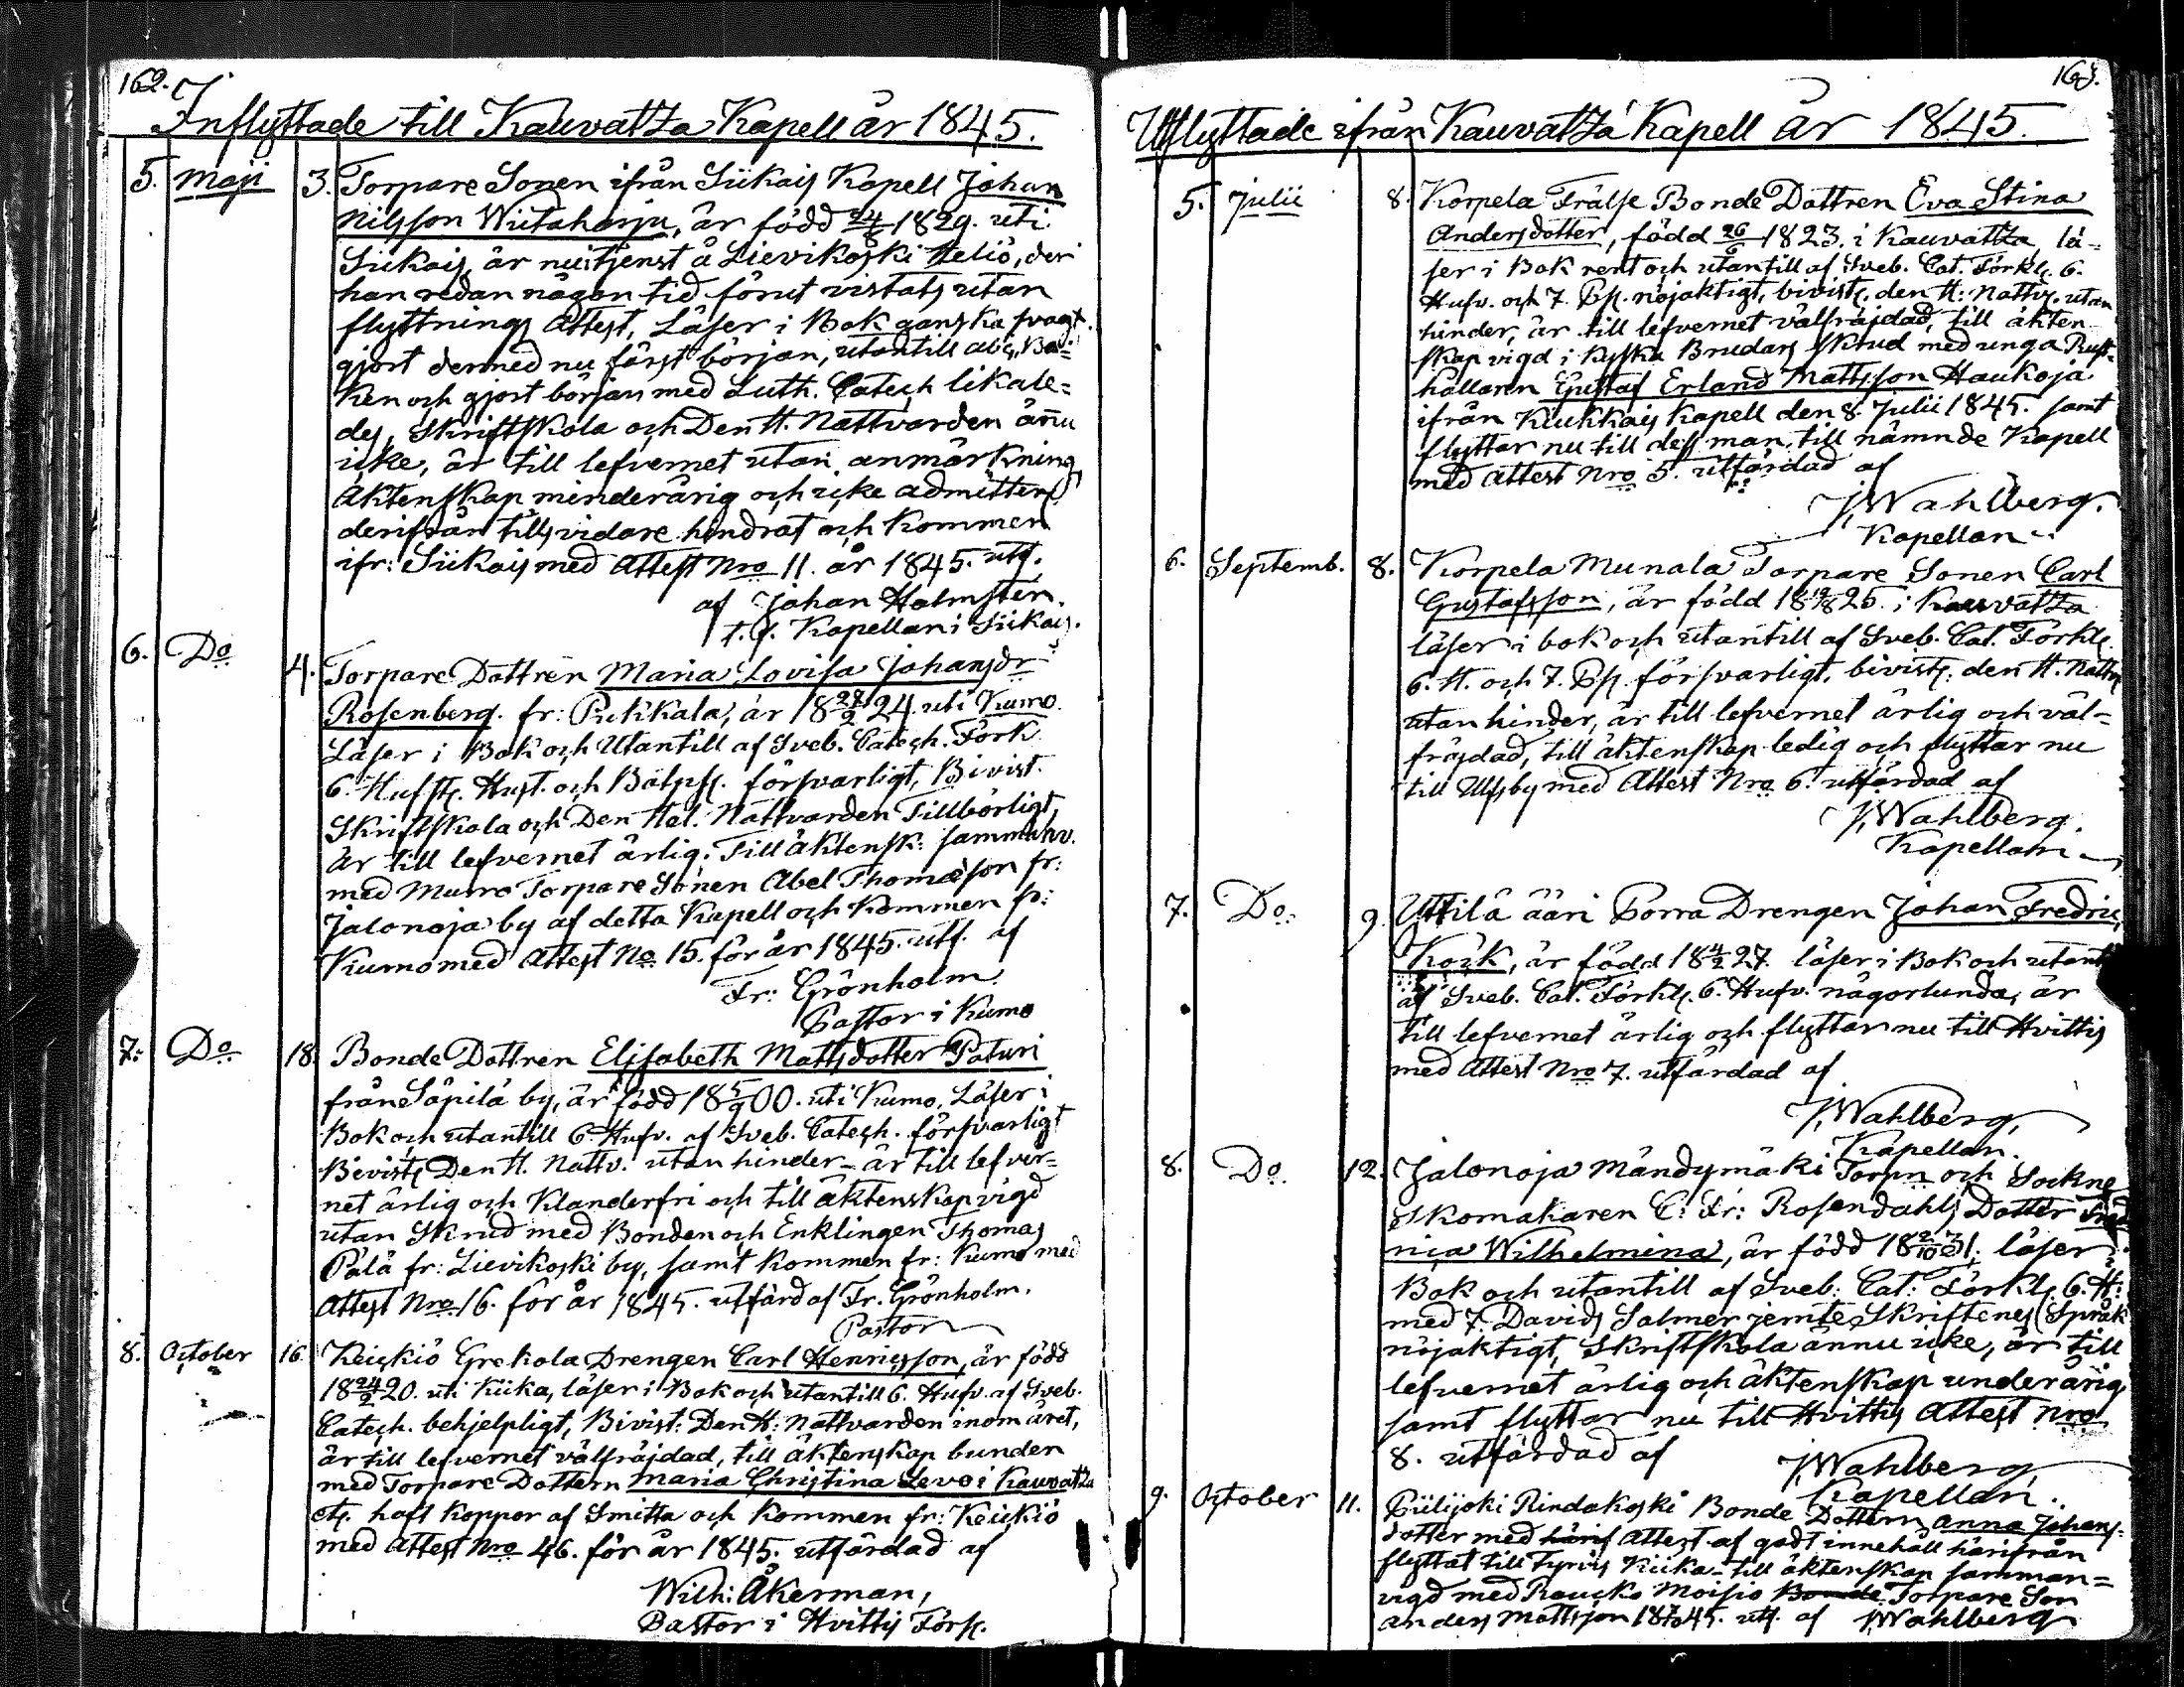 162.
Inflyttade till Kauvatza Kapell år 1845.
5. Maji 3. Torpare Sonen ifrån Siikais Kapell Johan
Nilsson Wiitaharju, är född 24/8 1829. uti
Siikais, är nu i tjenst å Lievikoski Heliö, der
han redan någon tid förut vistats utan
flyttnings Attest, Läser i Bok ganska svagt.
gjort dermed nu först början, utantill abc, Bo-
ken och gjort början med Luth. Catech likale=
des, Skriftskola och Den H. Nattvarden ännu
icke, är till lefvernet utan anmärkning,
Äktenskap minderårig och icke admitterad
derifrån tills vidare hindrat och kommen
ifr: Siikais med Attest Nro 11. år 1845. utf.
af Johan Holmsten.
t.f. Kapellan i Siikais.
6. Do 4. Torpare Dottren Maria Lovisa Johansdr
Rosenberg. fr: Pukkala, är 18 28/2 24. uti Kumo.
Läser i Bok och Utantill af Sveb. Catech. Förk
6. Hufst. Hust. och Botpss. försvarligt, Bivist.
Skriftskola och Den Hel. Nattvarden Tillbörligt,
är till lefvernet ärlig. Till äktensk: sammanv.
med Murro Torpare Sonen Abel Thomæson fr:
Jalonoja by af detta Kapell och Kommen fr:
Kumo med Attest No 15. för år 1845. utf. af
Fr: Grönholm
Pastor i Kumo
7. Do 18. Bonde Dottren Elisabeth Mattsdotter Paturi
från Säpilä by, är född 18 5/9 00. uti Kumo, Läser i
Bok och utantill 6. Hufv. af Sveb. Catech. försvarligt
Bivists Den H. Nattv. utan hinder - är till lefver=
net ärlig och Klanderfri och till äktenskap vigd
utan Skrud med Bonden och Enklingen Thomas
Pala fr: Lievikoski by, samt kommen fr: Kumo med
Attest Nro 16. för år 1845. utfärd af Fr. Grönholm.
Pastor
8. October 16. Keickiö Grekola Drengen Carl Henricsson, är född
18 24/2 20. uti Kiika, läser i Bok och utantill 6. Hufv. af Sveb.
Catech. behjelpligt, Bivist: Den H: Nattvarden inom året,
är till lefvernet välfräjdad, till äktenskap bunden
med Torpare Dottern Maria Christina Levo i Kauvatza
etc. haft koppor af Smitta och Kommen fr: Keickiö
med Attest Nro 46. för år 1845. utfärdad af
Wilh: Åkerman,
Pastor i Hvittis Förs.
163.
Utflyttade ifrån Kauvatza Kapell år 1845.
5. Julii 8. Korpela Frälse Bonde Dottren Eva Stina
Andersdotter, född 26/6 1823. i Kauvatza, lä=
ser i Bok rent och utantill af Sveb. Cat. Förkl. 6.
Hufv. och 7. Ps. nöjaktigt, bivists. den H: Nattv. utan
hinder, är till lefvernet välfräjdad, till äkten
skap vigd i Kyska Brudars Skrud med unga Rust=
hållaren Gustaf Erland Mattsson Haukoja
ifrån Kiukkais Kapell den 8. Julii 1845. samt
flyttar nu till dess man, till nämnde Kapell
med attest Nro 5. utfärdad af
J. Wahlberg.
Kapellan
6. Septemb. 8. Korpela Munala Torpare Sonen Carl
Gustafsson, är född 18 19/8 25. i Kauvatza
läser i bok och utantill af Sveb. Cat. Förkl.
6. H. och 7. Ps. försvarligt, bivists. den H. Nattv
utan hinder, är till lefvernet ärlig och väl=
fräjdad, till äktenskap ledig och flyttar nu
till Ulfsby med Attest Nro 6. utfärdad af
J. Wahlberg.
Kapellan
7. Do 9. Yttilä ääri Porra Drengen Johan Fredric
Körk, är född 18 4/2 27. läser i Bok och utant
af Sveb. Cat. Förkl. 6. Hufv. någorlunda, är
till lefvernet ärlig och flyttar nu till Hvittis
med Attest Nro 7. utfärdad af
J. Wahlberg,
Kapellan.
8. Do 12. Jalonoja Mändymäki Torpn och Sockne
Skomakaren C: Fr: Rosendahls Dotter Fred
rica Wilhelmina, är född 18 2/10 31, läser i
Bok och utantill af Sveb: Cat: Förkl. 6. H:
med 7. Davids Salmer jemte Skriftenes Språk
nöjaktigt, Skriftskola ännu icke, är till
lefvernet ärlig och äktenskap underårig,
samt flyttar nu till Hvittis Attest Nro
8. utfärdad af J. Wahlberg
Kapellan.
9. October 11. Piilijoki Rindakoski Bonde Dottern Anna Johans=
dotter med Attest af godt innehåll härifrån
flyttat till Tyrvis Kiika - till äktenskap samman=
vigd med Raucko Moisio Bonde Torpare Son
Anders Mattsson 1845. utf. af J. Wahlberg